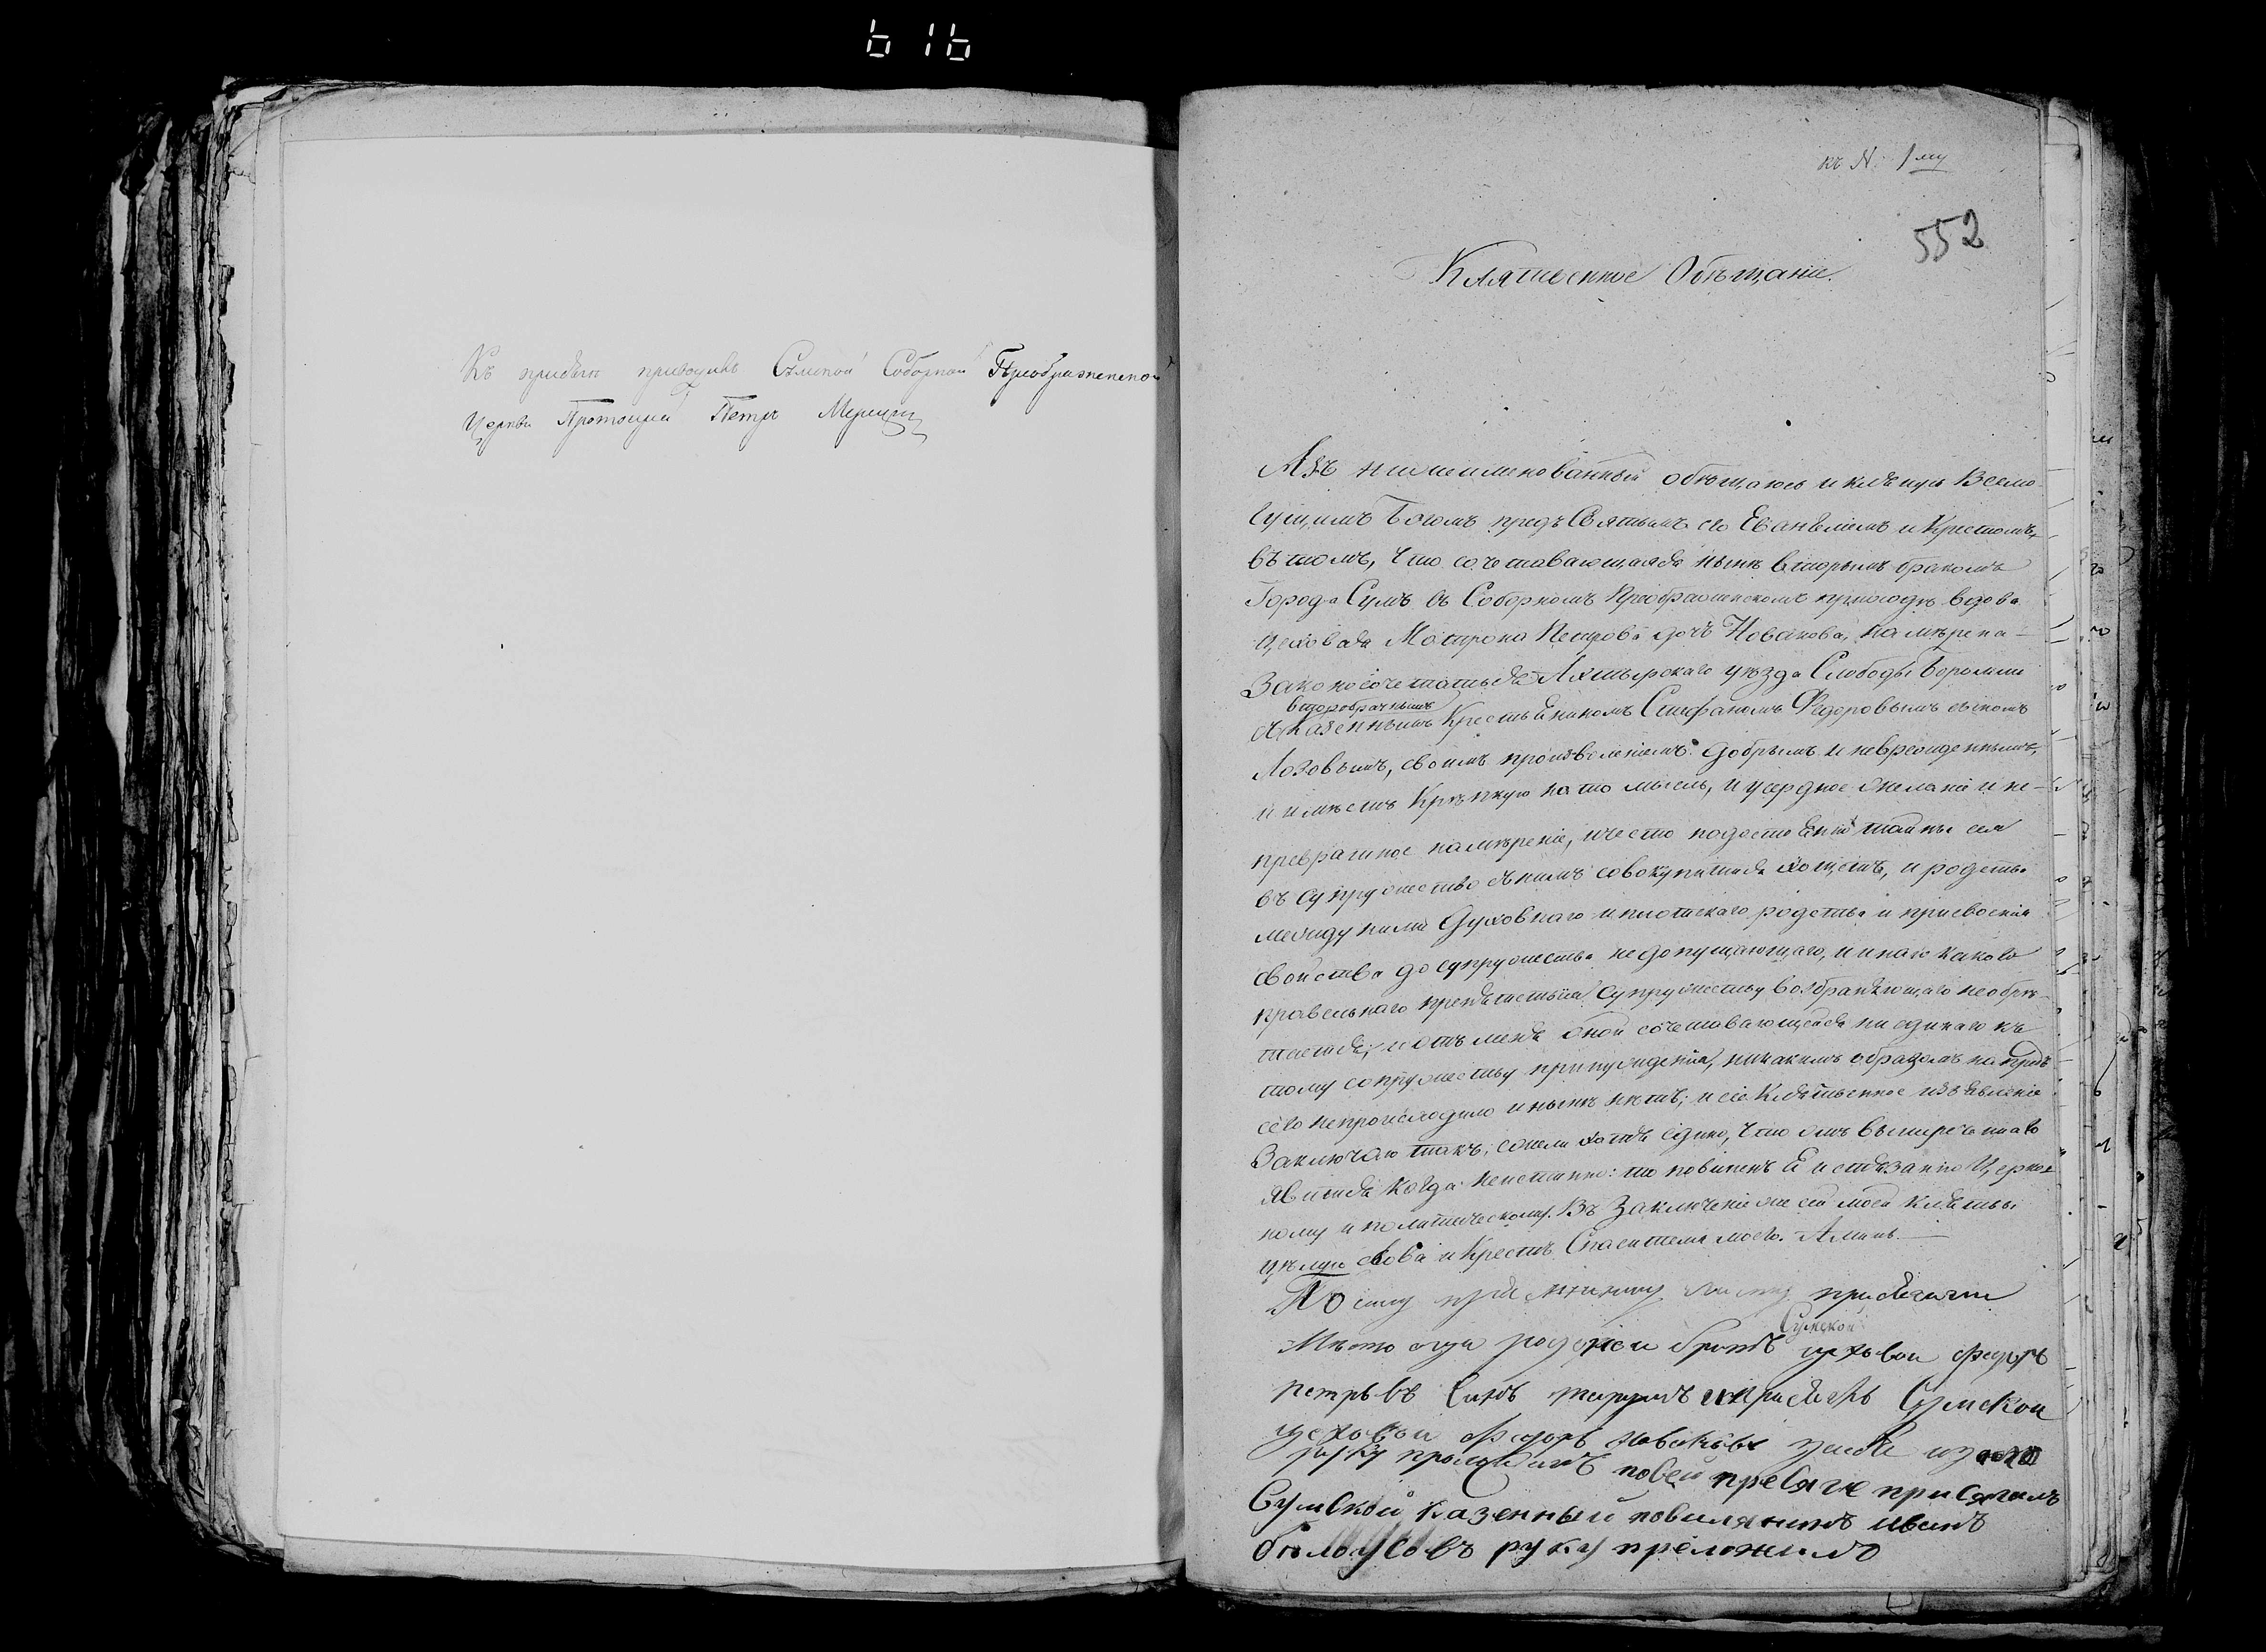 616
Къ присягѣ приводилъ Сумской Соборной Преображенской
Церкви Протоіерей Петръ
къ N. 1му
552
Клятвенное Обѣщаніе.
Азъ нижеименованный обѣщаюсь и клѣнусь Всемо
гущимъ Богомъ предъ Святымъ его Евангеліемъ и Крестомъ,
въ томъ, что сочетавающаяся нынѣ вторымъ бракомъ
Города Сумъ въ Соборномъ Преображенскомъ приходѣ вдова
цеховая Мотрона Петрова дочь Новакова, намѣрена
Законосочетаться Ахтырскаго уѣзда Слободы Боромли
второбрачнымъ
съ Казеннымъ Крестьяниномъ Стефаномъ Федоровымъ сыномъ
Лозовымъ, своимъ произволеніемъ добрымъ и невреожденнымъ,
и имѣетъ Крѣпкую на то мысль, и усердное желаніе и не-
превратное намѣреніе, и честно по достоянію тайны сея
въ супружество съ нимъ совокупитися хощетъ, и родства
между ними Духовнаго и плотскаго родства и присвоенія
свойства до супружества недопущающаго, и инаго каково
правельнаго препятствія супружеству возбраняющаго необрѣ-
тается, и отъ меня оной сочетавающейся ни единаго къ
тому сопружеству принужденія, никакимъ образомъ напредъ
сего непроисходило и нынѣ нѣтъ; и сіе Клятвенное изъявленіе
Заключаю такъ; ежели хотя едино, что отъ вышереченнаго
явится когда неистинно: то повиненъ Я истязанію Церков
ному и политическому. Въ Заключеніе же сей моей клятвы
цѣлую слова и Крестъ Спасителя моего. Аминь.
По сему присяжному листу присягали
Сумской
Мѣсто отца родной братъ цеховой Федоръ
петръвъ Синъ Сумской
цеховой Федоръ Новакъвъ
руку приложилъ по сей пресяге присягалъ
Сумской казенный повилянинъ иванъ
бѣлоусовъ руку преложилъ